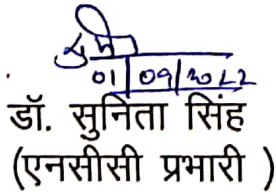 सुनि
01/09/2022
डॉ. सुनिता सिंह
(एनसीसी प्रभारी )